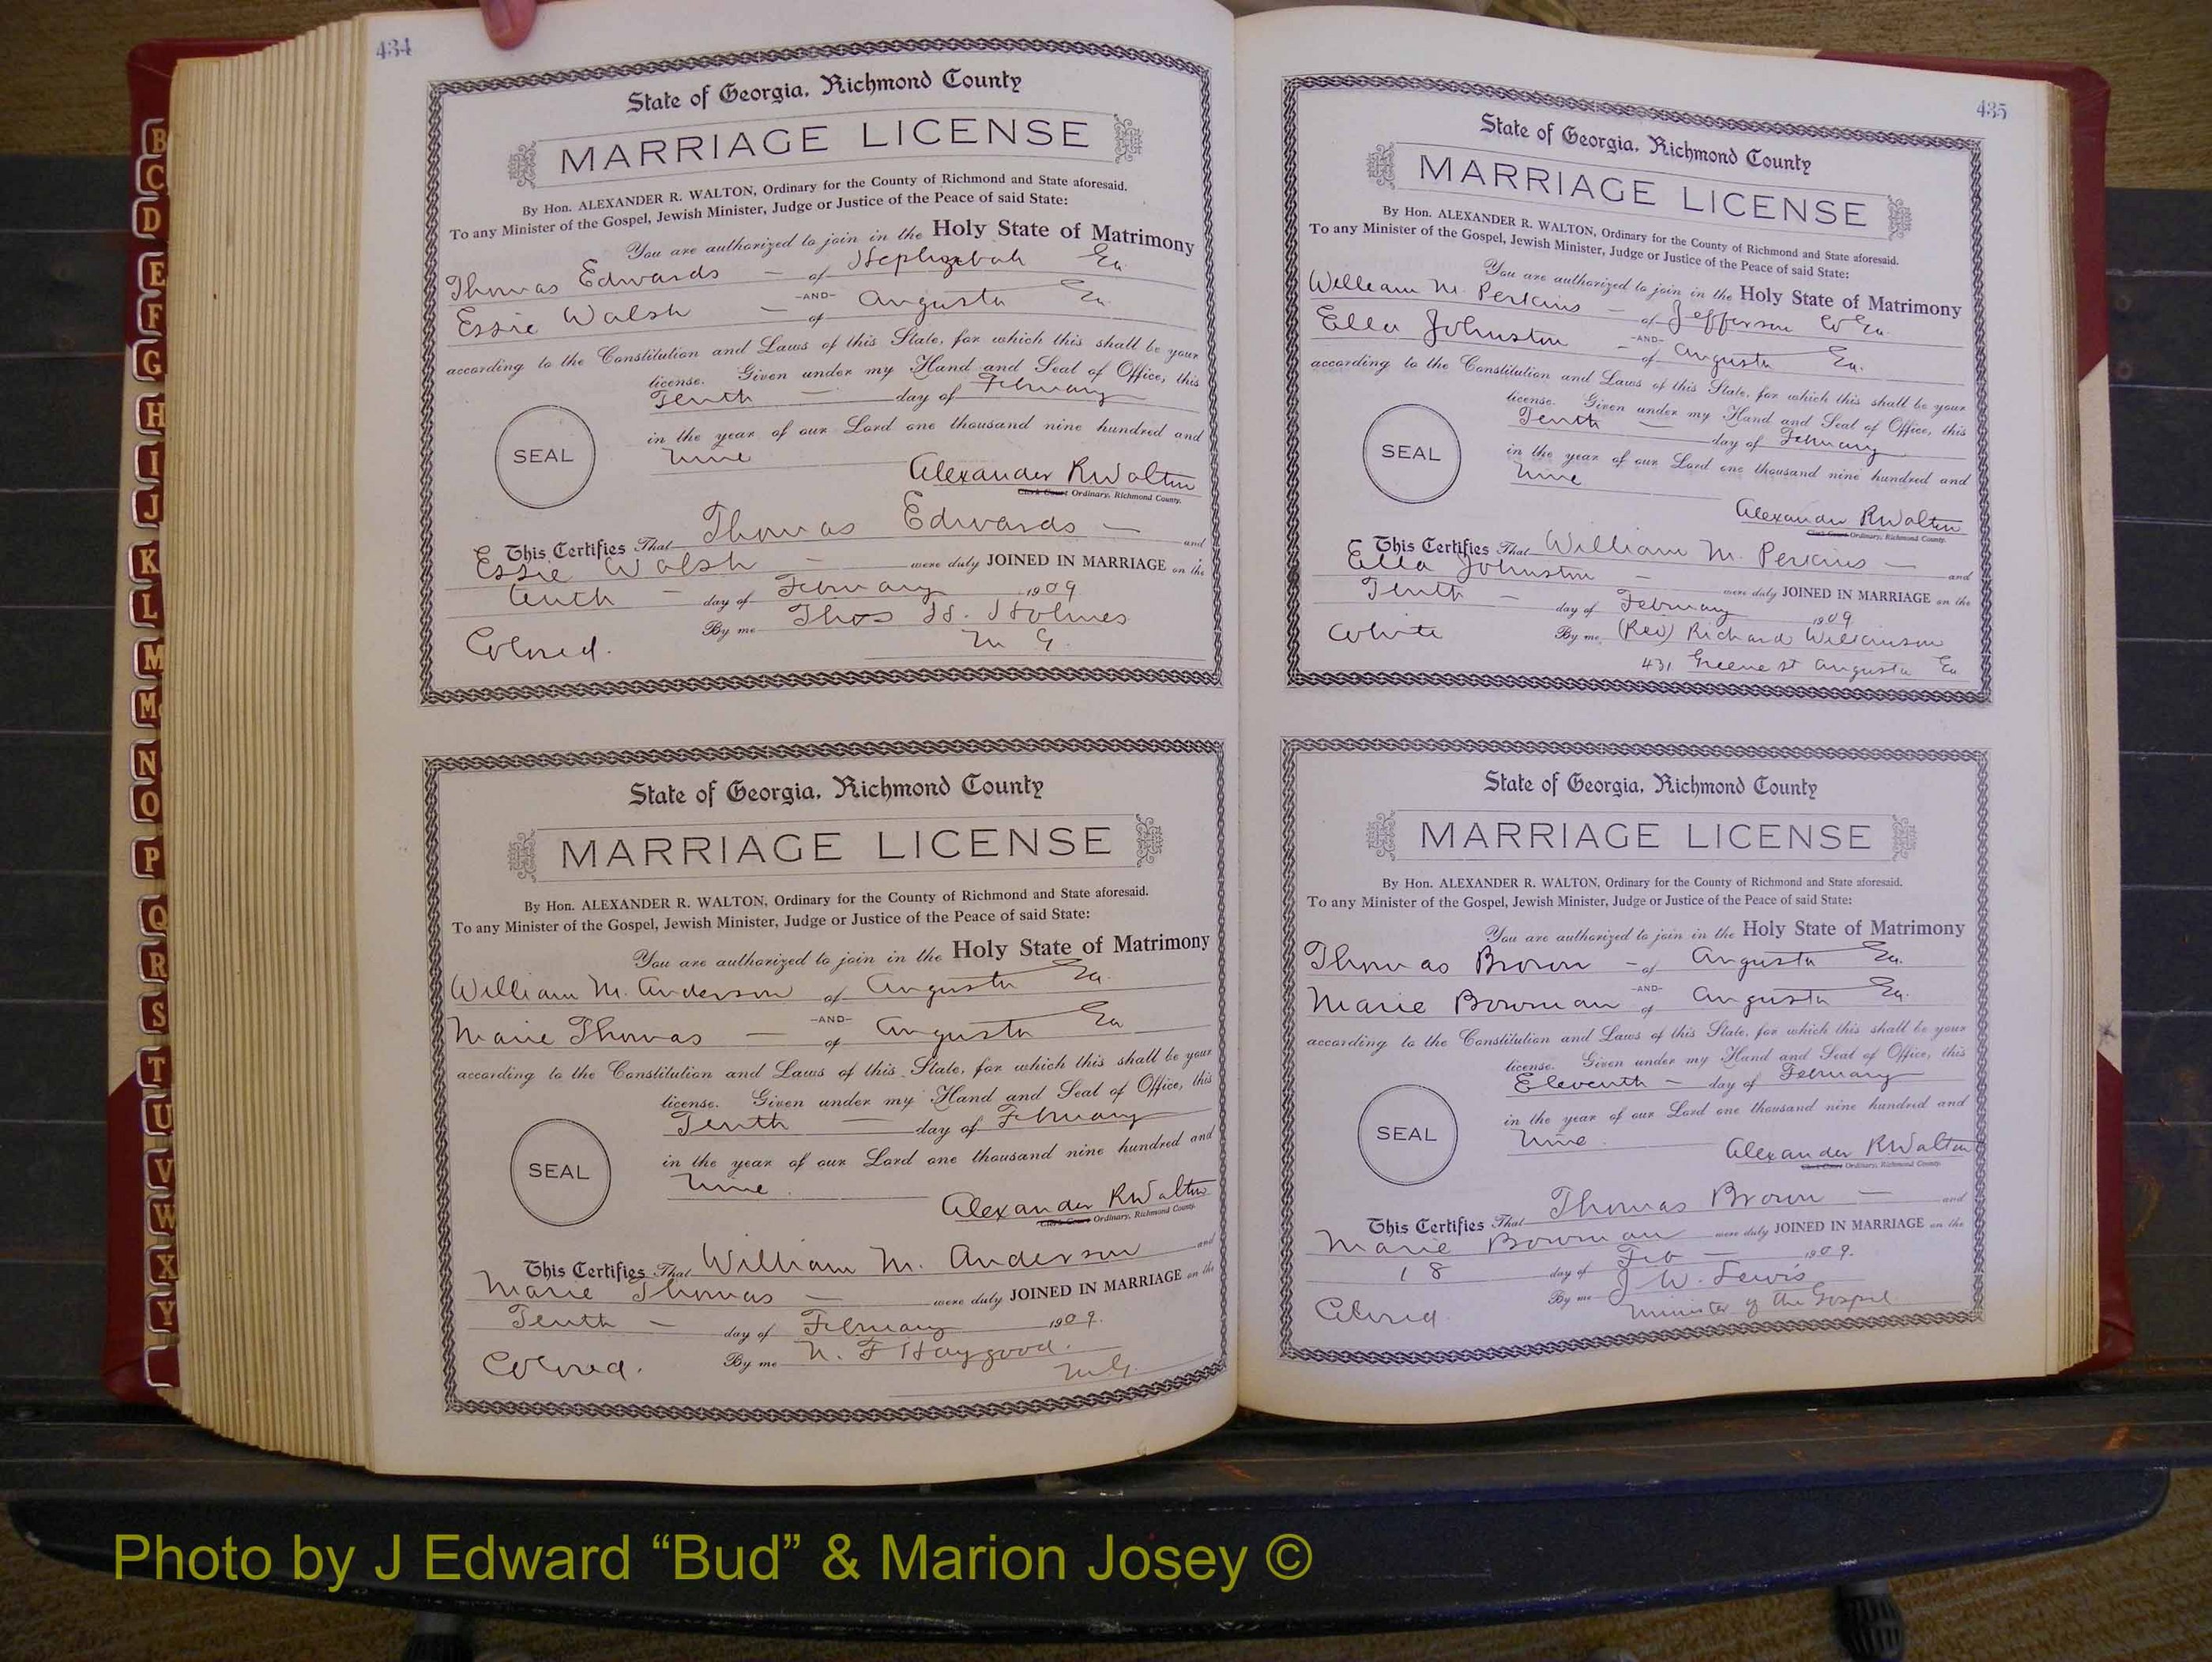 434
State of Georgia, Richmond County
MARRIAGE LICENSE
By Hon. ALEXANDER R. WALTON, Ordinary for the County of Richmond and State aforesaid.
To any Minister of the Gospel, Jewish Minister, Judge or Justice of the Peace of said State:
You are authorized to join in the Holy State of Matrimony
Thomas Edwards — of Hephzibah Ga
-AND-
Essie Walsh — of Augusta Ga.
according to the Constitution and Laws of this State, for which this shall be your
license. Given under my Hand and Seal of Office, this
Tenth — day of February
in the year of our Lord one thousand nine hundred and
nine
SEAL
Alexander R Walton
Clerk Court Ordinary, Richmond County.
This Certifies That Thomas Edwards — and
Essie Walsh — were duly JOINED IN MARRIAGE on the
tenth — day of February 1909
Colored. By me Thos H. Holmes
M G.
State of Georgia, Richmond County
MARRIAGE LICENSE
By Hon. ALEXANDER R. WALTON, Ordinary for the County of Richmond and State aforesaid.
To any Minister of the Gospel, Jewish Minister, Judge or Justice of the Peace of said State:
You are authorized to join in the Holy State of Matrimony
William M. Anderson of Augusta Ga.
-AND-
Marie Thomas — of Augusta Ga
according to the Constitution and Laws of this State, for which this shall be your
license. Given under my Hand and Seal of Office, this
Tenth — day of February
in the year of our Lord one thousand nine hundred and
nine.
SEAL
Alexander R Walton
Clerk Court Ordinary, Richmond County.
This Certifies That William M. Anderson and
Marie Thomas — were duly JOINED IN MARRIAGE on the
Tenth — day of February 1909.
Colored. By me N. F Haygood.
M.G.
435
State of Georgia, Richmond County
MARRIAGE LICENSE
By Hon. ALEXANDER R. WALTON, Ordinary for the County of Richmond and State aforesaid.
To any Minister of the Gospel, Jewish Minister, Judge or Justice of the Peace of said State:
You are authorized to join in the Holy State of Matrimony
William M. Perkins — of Jefferson Co Ga.
-AND-
Ella Johnston — of Augusta Ga.
according to the Constitution and Laws of this State, for which this shall be your
license. Given under my Hand and Seal of Office, this
Tenth — day of February
in the year of our Lord one thousand nine hundred and
nine
SEAL
Alexander R Walton
Clerk Court Ordinary, Richmond County.
This Certifies That William M. Perkins — and
Ella Johnston — were duly JOINED IN MARRIAGE on the
Tenth — day of February 1909
White By me (Rev) Richard Wilkinson
431 Greene st Augusta Ga
State of Georgia, Richmond County
MARRIAGE LICENSE
By Hon. ALEXANDER R. WALTON, Ordinary for the County of Richmond and State aforesaid.
To any Minister of the Gospel, Jewish Minister, Judge or Justice of the Peace of said State:
You are authorized to join in the Holy State of Matrimony
Thomas Brown — of Augusta Ga.
-AND-
Marie Bowman of Augusta Ga.
according to the Constitution and Laws of this State, for which this shall be your
license. Given under my Hand and Seal of Office, this
Eleventh — day of February
in the year of our Lord one thousand nine hundred and
nine.
SEAL
Alexander R Walton
Clerk Court Ordinary, Richmond County.
This Certifies That Thomas Brown — and
Marie Bowman were duly JOINED IN MARRIAGE on the
18 day of Feb — 1909.
Colored. By me J. W. Lewis
Minister of the Gospel
B
C
D
E
F
G
H
I
J
K
L
M
Mc
N
O
P
Q
R
S
T
U
V
W
X
Y
Photo by J Edward “Bud” & Marion Josey ©